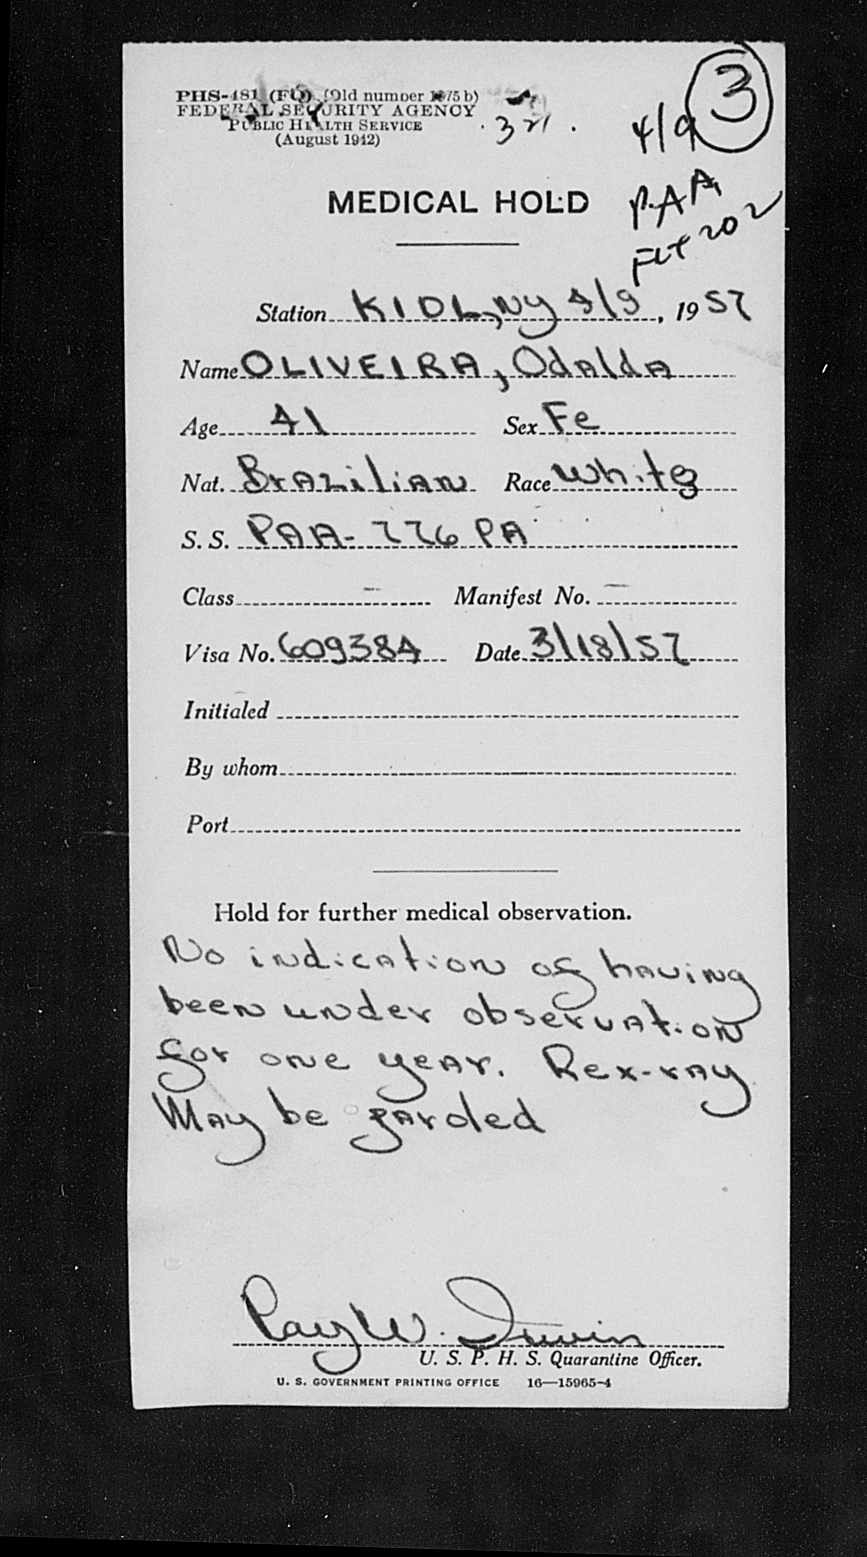 PHS-481 (FQ) (Old number 1975 b)
FEDERAL SECURITY AGENCY
PUBLIC HEALTH SERVICE
(August 1942)
321
3
4/9
PAA
FLT 202
MEDICAL HOLD
Station KIDL, NY 4/9, 1957
Name OLIVEIRA, Odalda
Age 41 Sex Fe
Nat. Brazilian Race White
S. S. PAA-226 PA
Class - Manifest No. -
Visa No. 609384 Date 3/18/57
Initialed
By whom
Port
Hold for further medical observation.
No indication of having
been under observation
for one year. Rex-ray
May be garded
Ray W. Irwin
U. S. P. H. S. Quarantine Officer.
U. S. GOVERNMENT PRINTING OFFICE 16—15965-4